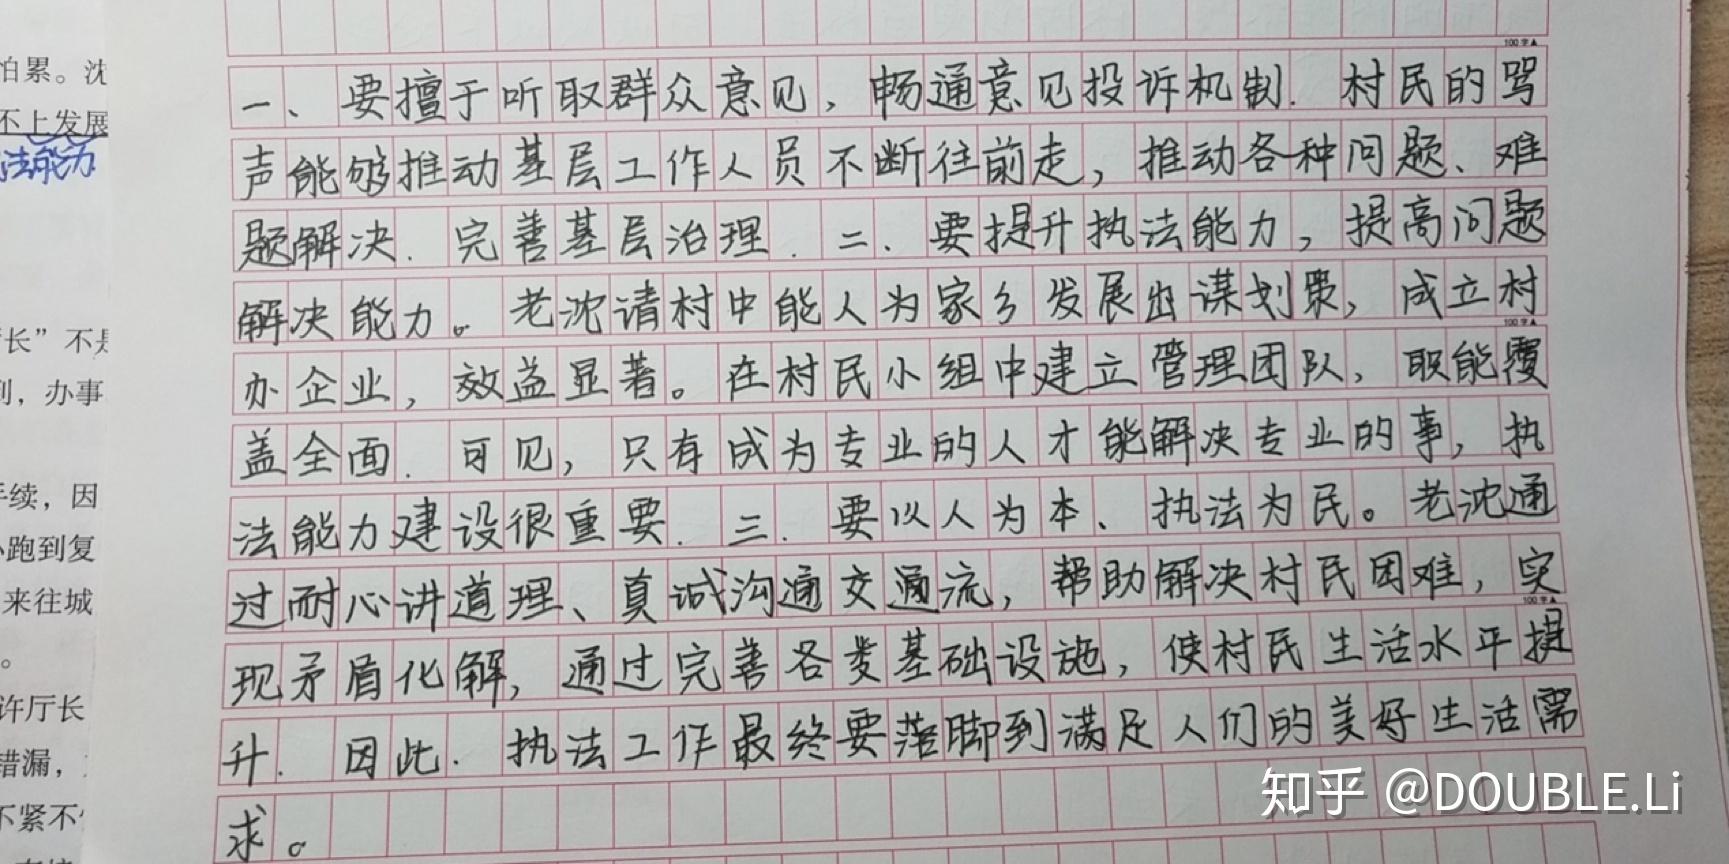 一、要擅于听取群众意见，畅通意见投诉机制．村民的骂
声能够推动基层工作人员不断往前走，推动各种问题、难
题解决．完善基层治理．二．要提升执法能力，提高问题
解决能力。老沈请村中能人为家乡发展出谋划策，成立村
办企业，效益显著。在村民小组中建立管理团队，职能覆
盖全面．可见，只有成为专业的人才能解决专业的事，执
法能力建设很重要．三．要以人为本、执法为民。老沈通
过耐心讲道理、真诚沟通交通流，帮助解决村民困难，实
现矛盾化解，通过完善各类基础设施，使村民生活水平提
升．因此．执法工作最终要落脚到满足人们的美好生活需
求。
怕累。沈
不上发展
法能力
长”不是
到，办事
手续，因
跑到复
来往城
。
许厅长
错漏，
不紧不
100字▲
100字▲
100字▲
知乎 @DOUBLE.Li